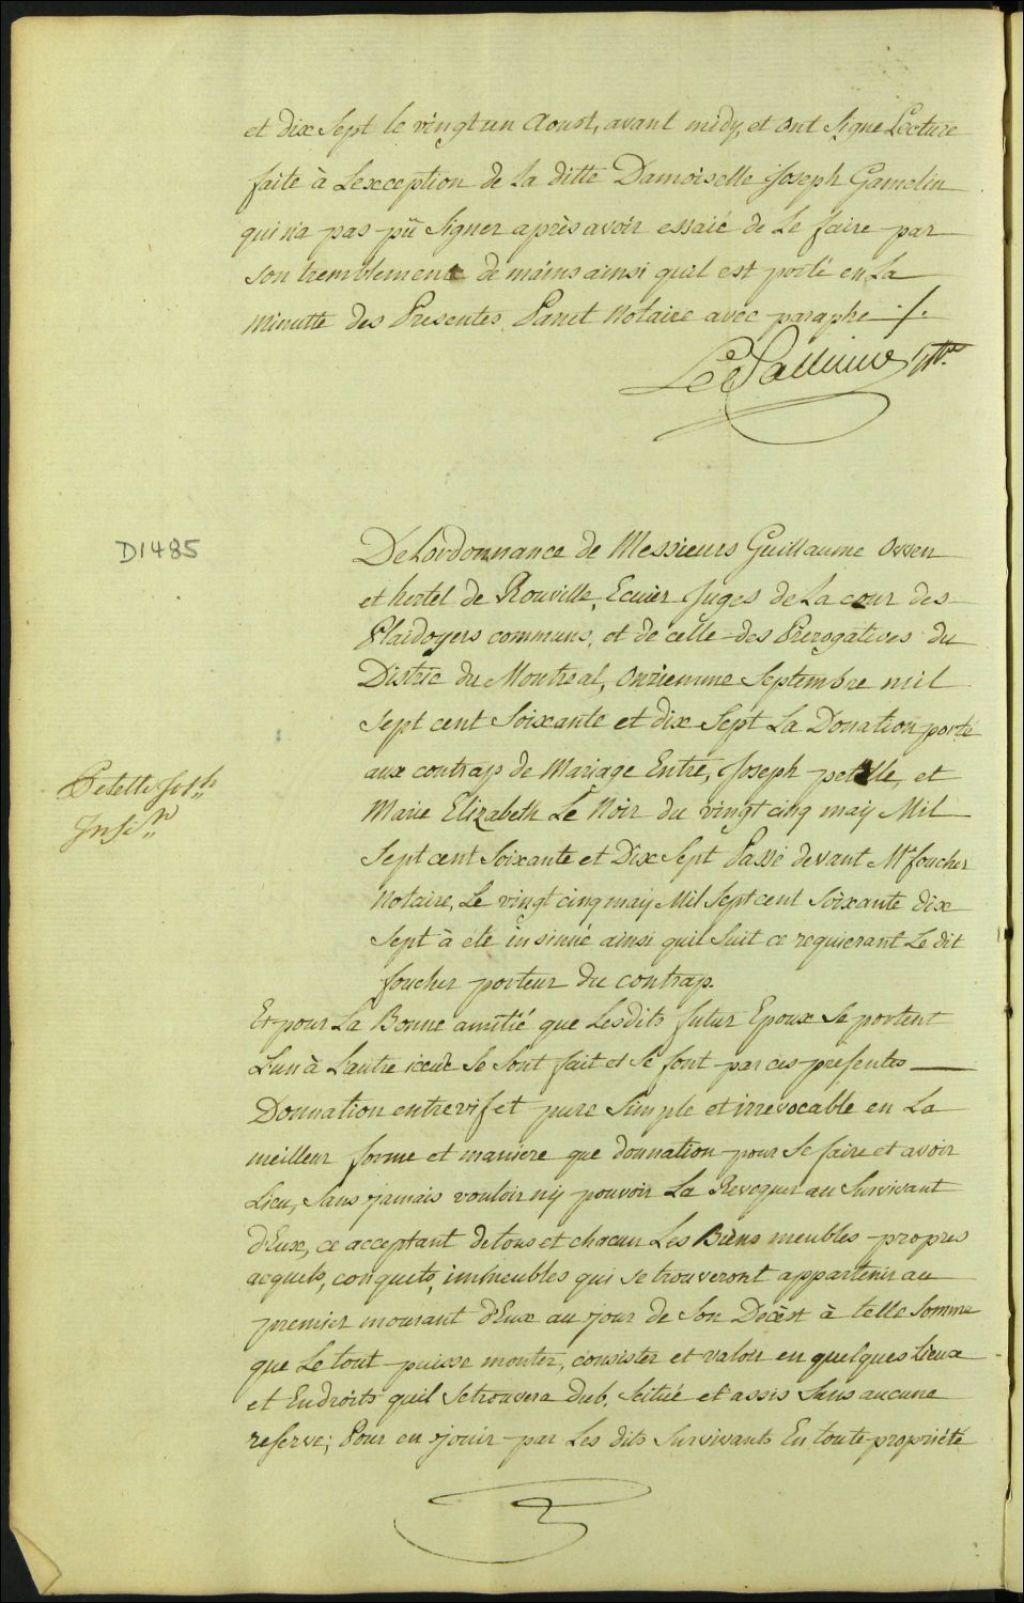 et dix Sept le vingt un Aoust, avant midy, et ont Signe Lecture
faite à Lexception de la ditte Damoiselle Joseph Gamelin
qui n'a pas pü Signer après avoir essaié de Le faire par
son tremblement de mains ainsi quil est porté en La
Minutte des Presentes Panet Notaire avec paraphe ./.
D1485
De Lordonnance de Messieurs Guillaume Owen
et hertel de Rouville, Ecuier Juges de La cour des
Plaidoyers communs, et de celle des Prerogatives du
Distric du Montreal, Onziemme Septembre mil
Sept cent Soixante et dix Sept La Donation porté
aux contrap de Mariage Entre, Joseph petelle, et
Marie Elizabeth Le Noir du vingt cinq maij Mil
Sept cent Soixante et Dix Sept Passé devant Mr foucher
Notaire, Le vingt cinq maij Mil Sept cent Soixante dix
Sept à ete insinué ainsi quil Suit ce requierant Le dit
foucher porteur du contrap.
Petelle Jos.ph
Insi.on
Et pour La Bonne amitié que Lesdits futur Epoux Se portent
L'un à Lautre iceux Se Sont fait et Se font par ces presentes
Donnation entrevif et pure Simple et irrevocable en La
meilleur forme et maniere que donnation pour Se faire et avoir
Lieu, Sans jamais vouloir nij pouvoir La Revoquer au Survivant
d'Eux, ce acceptant de tous et chacun Les Biens meubles propres
acquets, conquets, immeubles qui se trouveront appartenir au
premier mourant d'Eux au jour de Son Decest à telle Somme
que Le tout puisse monter, consister et valoir en quelques Lieux
et Endroits quil Se trouvera dub, Scitué et assis Sans aucune
reserve; Pour en jouir par Les dits Survivants En toute propriété